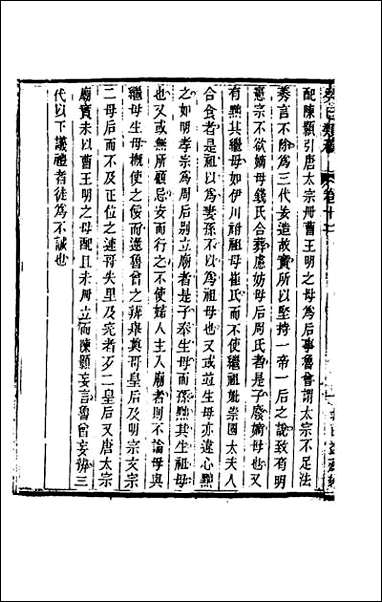 癸巳類稿 卷十二
配陳顥引唐太宗母曹王明之母為后事魯曾謂太宗不足法
秦言不除為三代妾造故實所以堅持一帝一后之說致有明
憲宗不欲嫡母錢氏合葬慮妨母后周氏者是子廢嫡母也又
有黜其繼母如伊川祔祖母崔氏而不使繼祖妣崇國太夫人
合食者是祖以為妻孫不以為祖母也又或並生母亦違心黜
之如明孝宗為周后別立廟者是子奉生母而孫黜其生祖母
也又或無所顧忌妄而行之不使婧人主入廟者則不論母與
繼母生母概使之餒而遜魯曾之辨雍奠哥皇后及明宗文宗
二母后而不及正位之速哥失里及完者歹二皇后又唐太宗
廟實未以曹王明之母配且未冊立而陳顥妄言魯曾妄辨三
代以下議禮者徒為不誠也